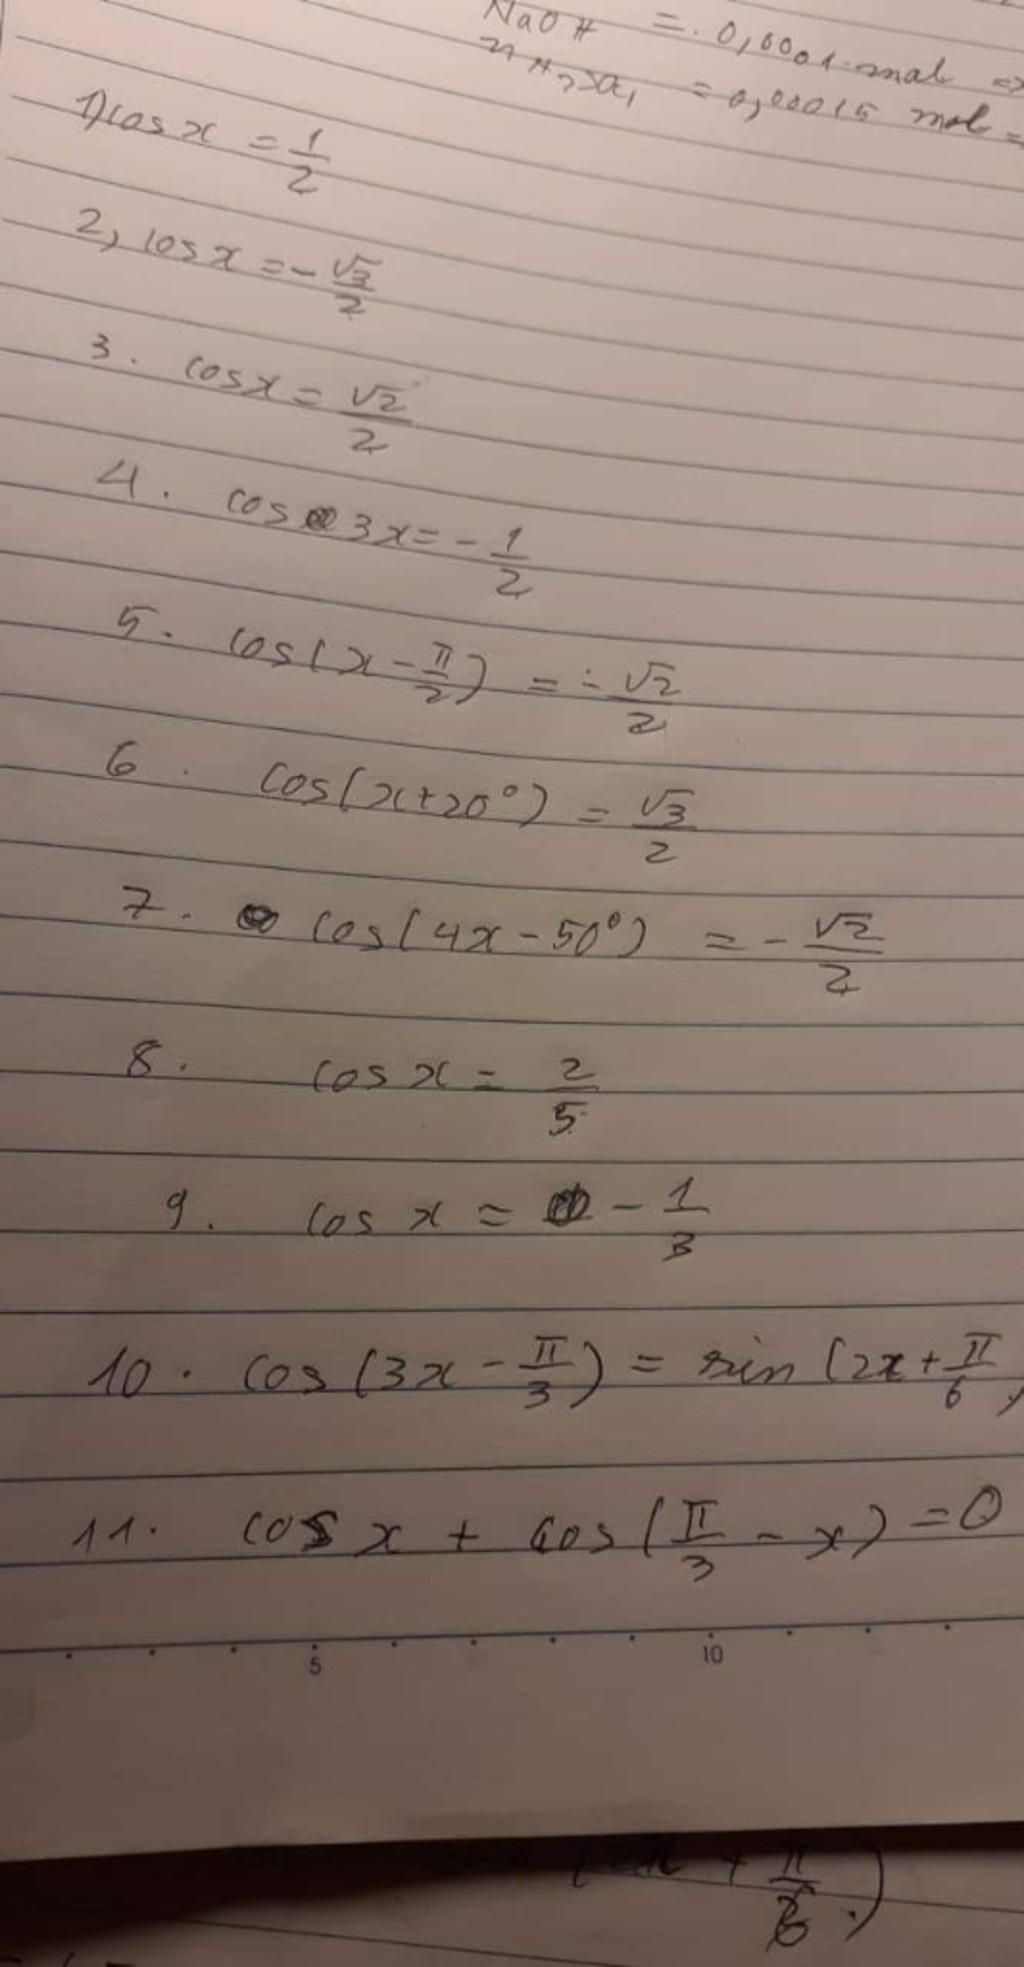 NaOH = 0,0001 mol =>
= 0,00015 mol =
1) cos x = 1/2
2, cos x = - √3/2
3. cos x = √2/2
4. cos 3x = - 1/2
5. cos(x - π/2) = - √2/2
6. cos(x+20°) = √3/2
7. cos(4x - 50°) = - √2/2
8. cos x = 2/5
9. cos x = - 1/3
10. cos(3x - π/3) = sin(2x + π/6)
11. cos x + cos(π/3 - x) = 0
5 10
(2x + π/6)